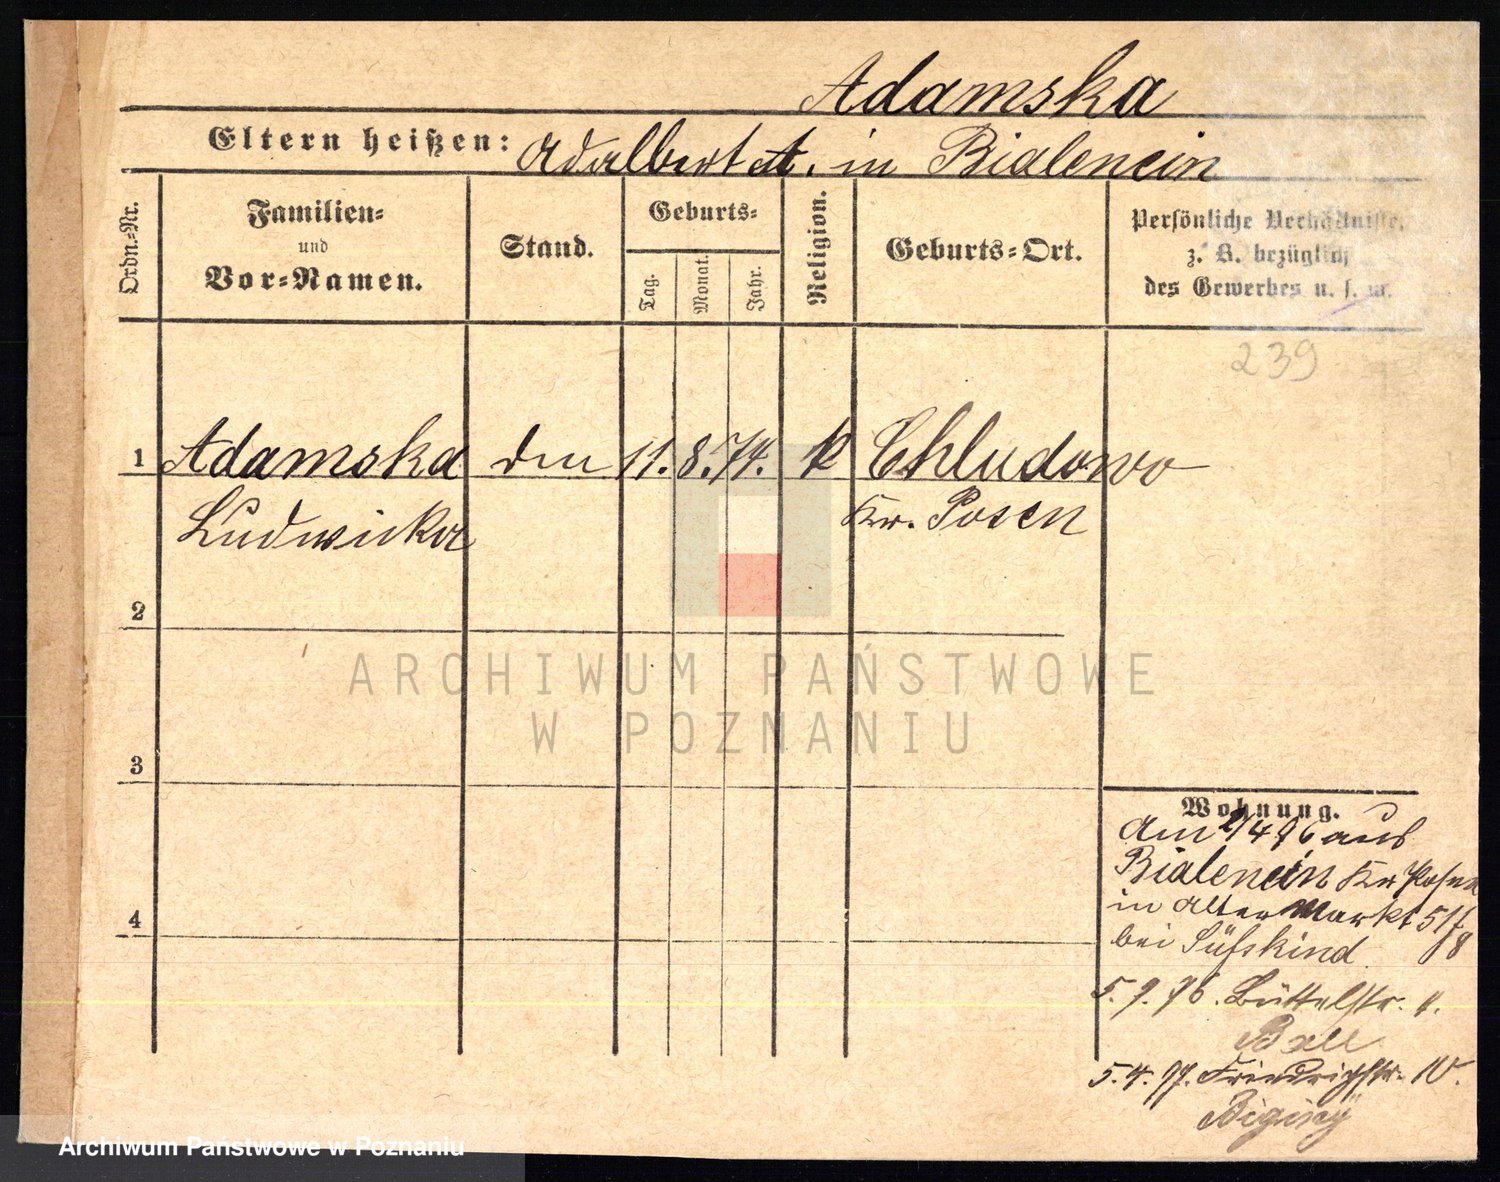 Adamska
Eltern heißen: Adalbert A. in Bialenein
Ordn.-Nr.
Familien-
und
Vor-Namen.
Stand.
Geburts-
Tag.
Monat.
Jahr.
Religion.
Geburts-Ort.
Persönliche Verhältnisse,
z. B. bezüglich
des Gewerbes u. s. w.
239
1 Adamska 11. 8. 74. k Chludowo
Ludwicka Kr. Posen
2
3
4
Wohnung.
Am 2/4 96 aus
Bialenein Kr Posen
in Alter Markt 51/
8
bei Süfskind
5. 9. 96. Büttelstr.
5. 4. 97. Friedrichstr. 10.
ARCHIWUM PAŃSTWOWE
W POZNANIU
Archiwum Państwowe w Poznaniu